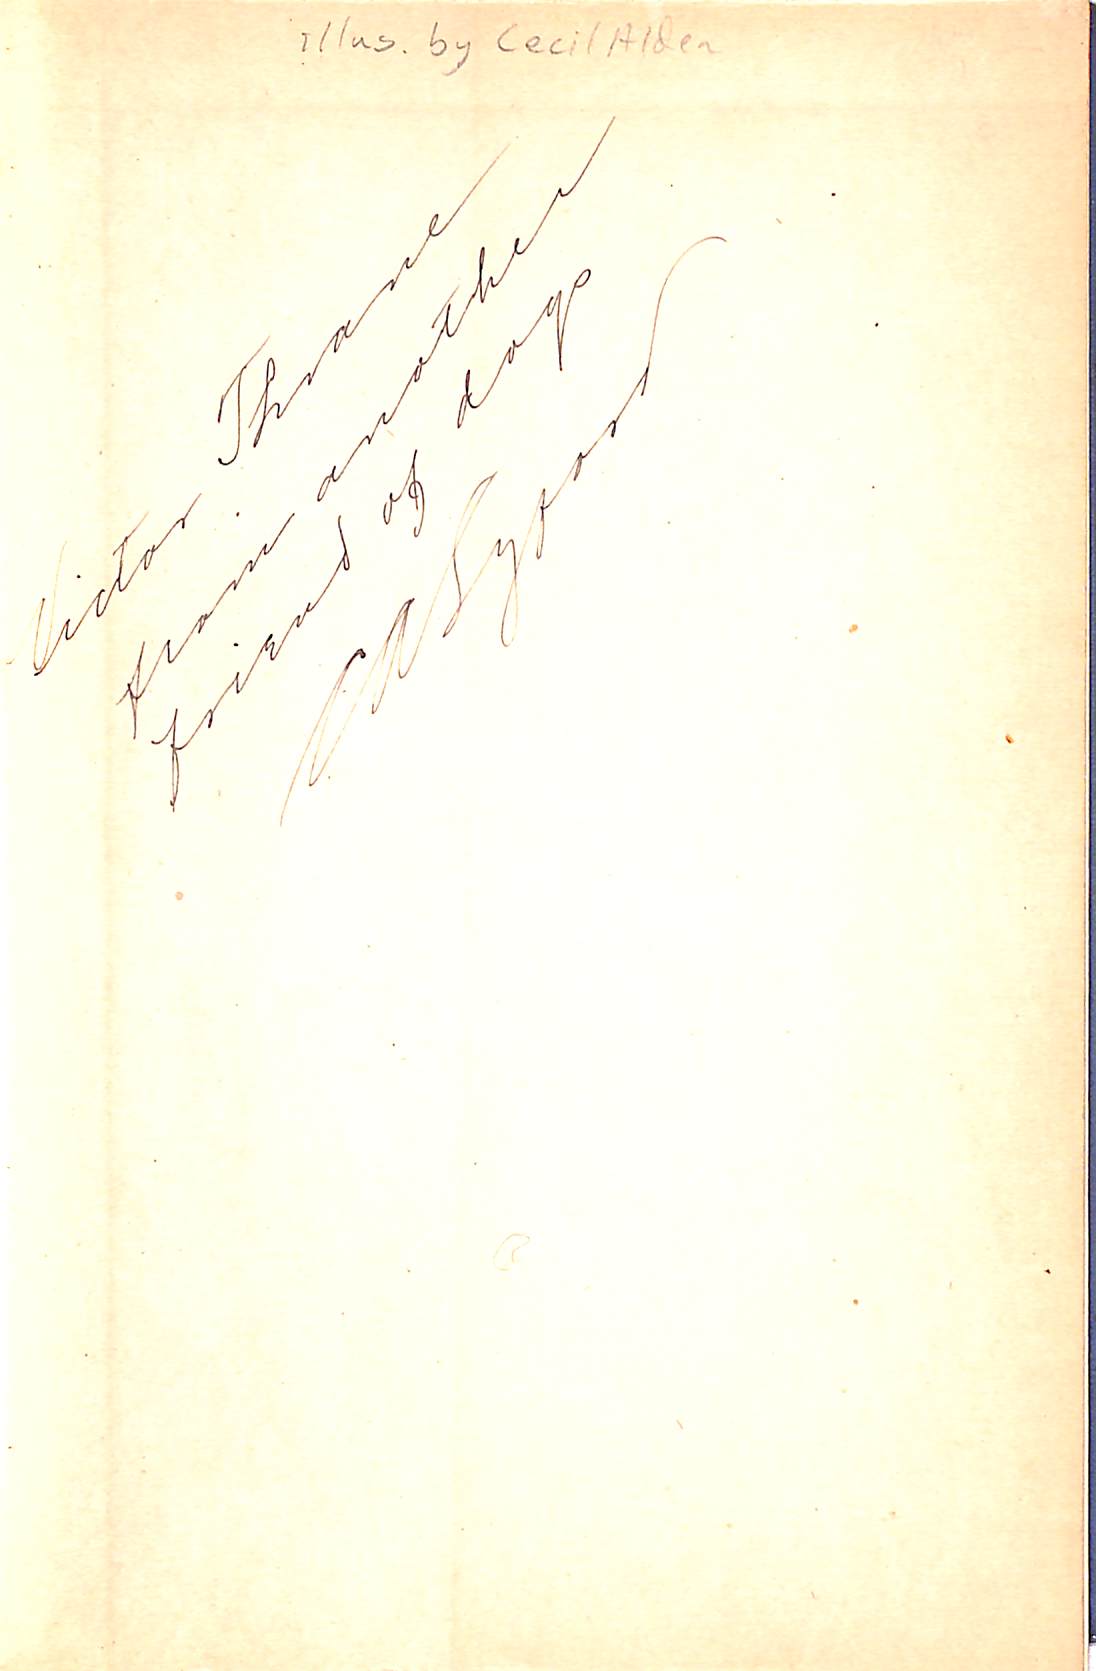 illus. by Cecil Alden
Victor Thrane
from another
friend of dogs